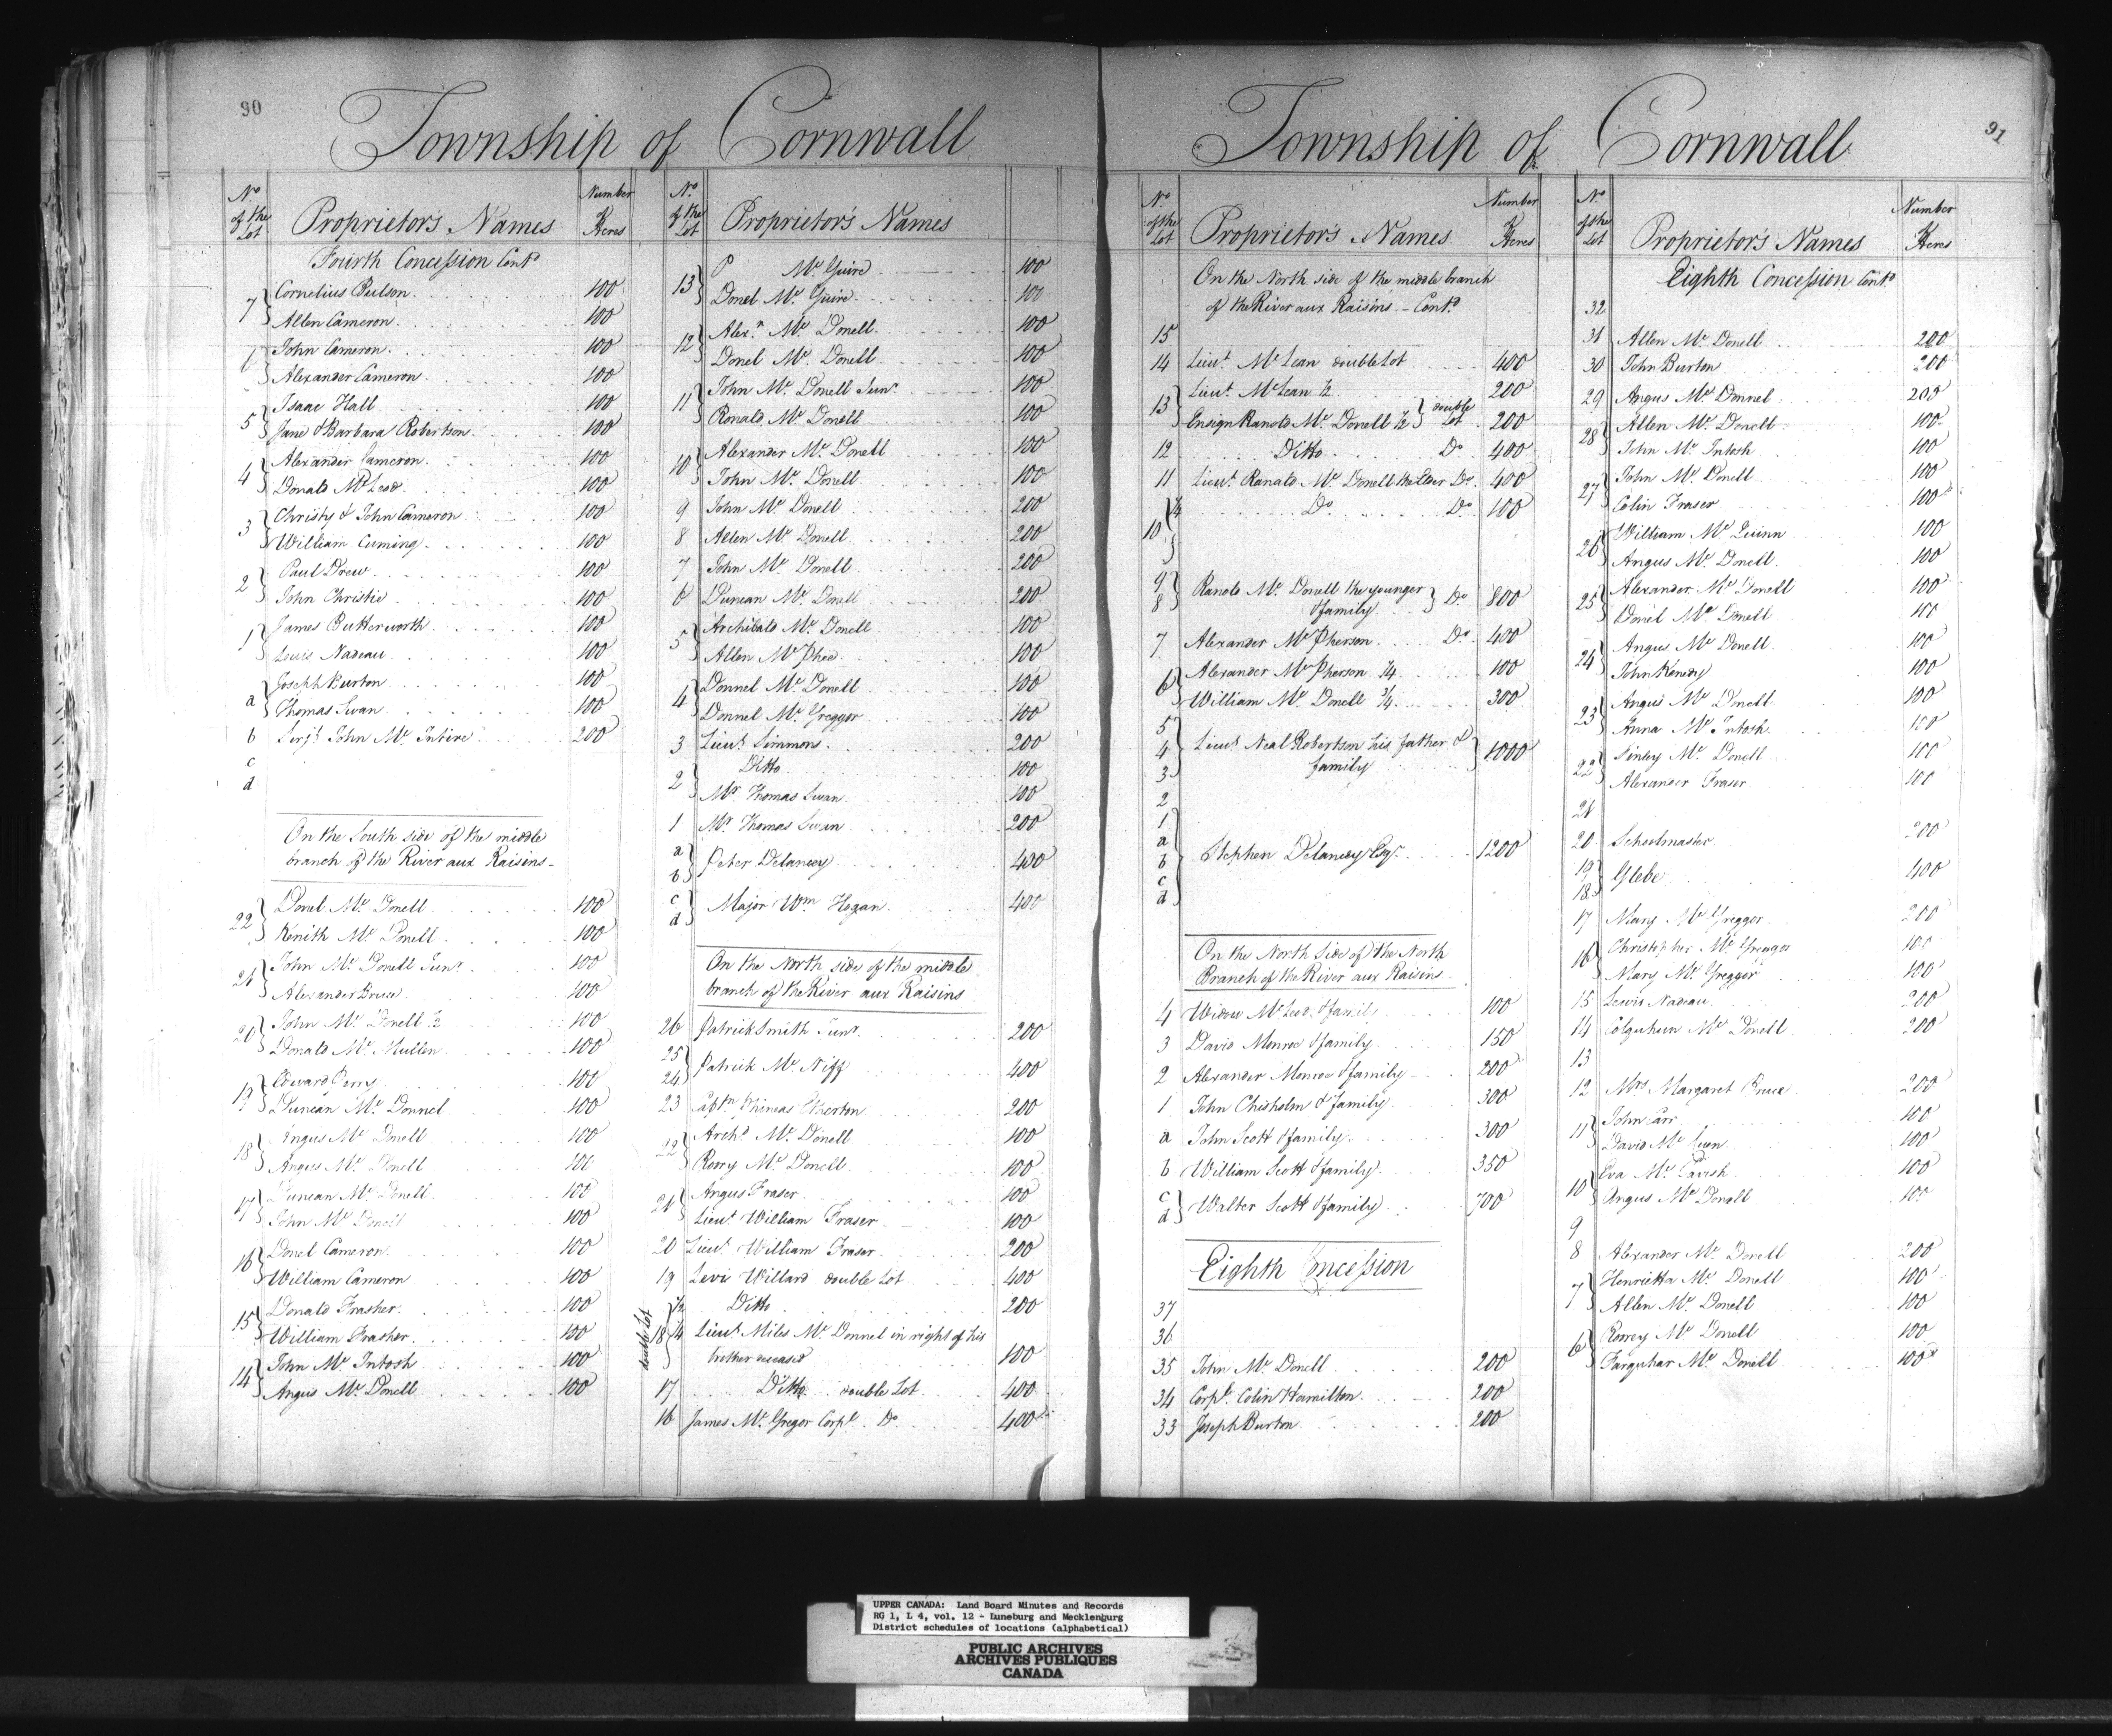 90
Township of Cornwall
No of the Lot Proprietor's Names Number of Acres
Fourth Concession Contd
7 Cornelius Pulson 100
Allen Cameron 100
6 John Cameron 100
Alexander Cameron 100
5 Isaac Hall 100
Jane & Barbara Robertson 100
4 Alexander Cameron 100
Donald McLeod 100
3 Christy & John Cameron 100
William Cuming 100
2 Paul Drew 100
John Christie 100
1 James Butterworth 100
Lewis Nadeau 100
a Joseph Burton 100
Thomas Swan 100
b Serjt John Mc Intire 200
c
d
On the South side of the middle
branch of the River aux Raisins
22 Donel Mc Donell 100
Kenith Mc Donell 100
21 John Mc Donell Junr 100
Alexander Bruce 100
20 John Mc Donell ½ 100
Donald Mc Mullen 100
19 Edward Perry 100
Duncan Mc Donnel 100
18 Angus Mc Donell 100
Angus Mc Donell 100
17 Duncan Mc Donell 100
John Mc Donell 100
16 Donel Cameron 100
William Cameron 100
15 Donald Frasher 100
William Frasher 100
14 John Mc Intosh 100
Angus Mc Donell 100
No of the Lot Proprietor's Names
13 P Mc Guire 100
Donel Mc Guire 100
12 Alexr Mc Donell 100
Donel Mc Donell 100
11 John Mc Donell Junr 100
Ronald Mc Donell 100
10 Alexander Mc Donell 100
John Mc Donell 100
9 John Mc Donell 200
8 Allen Mc Donell 200
7 John Mc Donell 200
6 Duncan Mc Donell 200
5 Archibald Mc Donell 100
Allen Mc Phee 100
4 Donnel Mc Donell 100
Donnel Mc Greggor 100
3 Lieut Simmons 200
2 Ditto 100
Mr Thomas Swan 100
1 Mr Thomas Swan 200
a b Peter Delancey 400
c d Major Wm Hogan 400
On the North side of the middle
branch of the River aux Raisins
26 Patrick Smith Junr 200
25 24 Patrick Mc Niff 400
23 Captn Phineas Therton 200
22 Archd Mc Donell 100
Rorry Mc Donell 100
21 Angus Fraser 100
Lieut William Fraser 100
20 Lieut William Fraser 200
19 Levi Willard double Lot 400
double Lot 18 ½ Ditto 200
¼ Lieut Miles Mc Donnel in right of his
brother deceased 100
17 Ditto double Lot 400
16 James Mc Gregor Corpl Do 400
91
Township of Cornwall
No of the Lot Proprietor's Names Number of Acres
On the North side of the middle branch
of the River aux Raisins - Contd
15
14 Lieut McLean double Lot 400
13 Lieut McLean ½ 200
Ensign Ranold Mc Donell ½ double Lot 200
12 Ditto Do 400
11 Lieut Ranald Mc Donell the Elder Do 400
10 ¼ Do Do 100
9 8 Ranold Mc Donell the younger
& family Do 800
7 Alexander Mc Pherson Do 400
6 Alexander Mc Pherson ¼ 100
William Mc Donell ¾ 300
5
4 Lieut Neal Robertson his father &
3 family 1000
2
1
a
b Stephen Delancey Esqr 1200
c
d
On the North Side of the North
Branch of the River aux Raisins
4 Widow McLeod & family 100
3 David Monroe & family 150
2 Alexander Monroe & family 200
1 John Chisholm & family 300
a John Scott & family 300
b William Scott & family 350
c d Walter Scott & family 700
Eighth Concession
37
36
35 John Mc Donell 200
34 Corpl Colin Hamilton 200
33 Joseph Burton 200
No of the Lot Proprietor's Names Number of Acres
Eighth Concession Contd
32
31 Allen Mc Donell 200
30 John Burton 200
29 Angus Mc Donnel 200
28 Allen Mc Donell 100
John Mc Intosh 100
27 John Mc Donell 100
Colin Fraser 100
26 William Mc Quinn 100
Angus Mc Donell 100
25 Alexander Mc Donell 100
Donel Mc Donell 100
24 Angus Mc Donell 100
John Kenedy 100
23 Angus Mc Donell 100
Anna Mc Intosh 100
22 Finley Mc Donell 100
Alexander Fraser 100
21
20 Schoolmaster 200
19 18 Glebe 400
17 Mary Mc Greggor 200
16 Christopher Mc Greggor 100
Mary Mc Greggor 100
15 Lewis Nadeau 200
14 Colquhoun Mc Donell 200
13
12 Mrs Margaret Bruce 200
11 John Carr 100
David Mc 100
10 Eva Mc Tavish 100
Angus Mc Donell 100
9
8 Alexander Mc Donell 200
7 Henrietta Mc Donell 100
Allen Mc Donell 100
6 Rorrey Mc Donell 100
Farquhar Mc Donell 100
UPPER CANADA: Land Board Minutes and Records
RG 1, L 4, vol. 12 - Luneburg and Mecklenburg
District schedules of locations (alphabetical)
PUBLIC ARCHIVES
ARCHIVES PUBLIQUES
CANADA